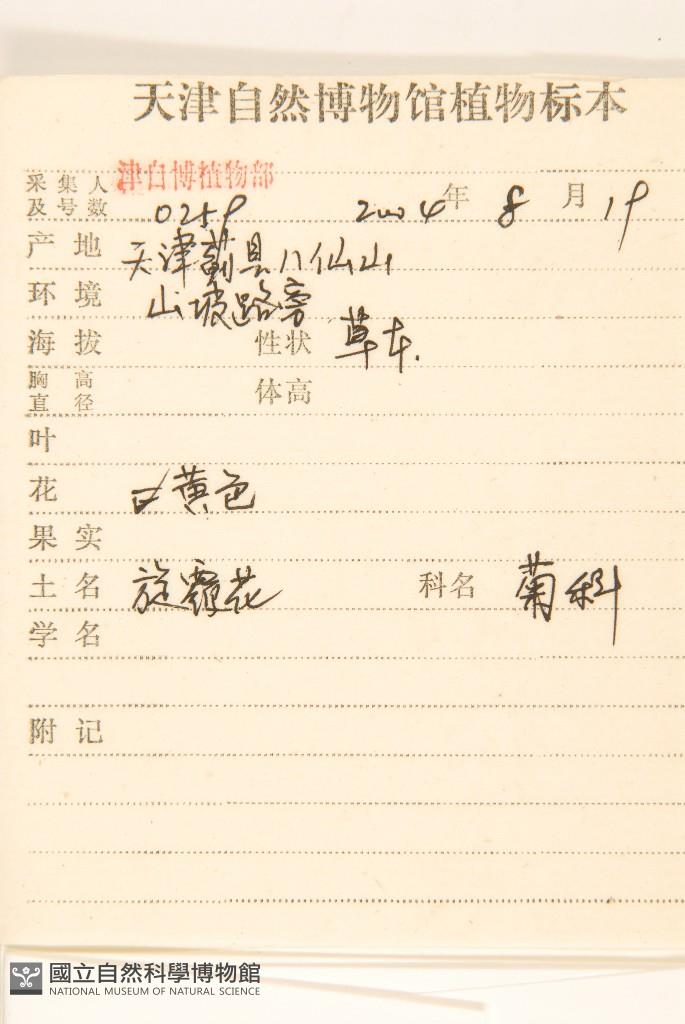 天津自然博物馆植物标本
采集人 津自博植物部
及号数 0259 2004年 8月 19
产地 天津蓟县八仙山
环境 山坡路旁
海拔 性状 草本.
胸高 体高
直径
叶
花 黄色
果实
土名 旋覆花 科名 菊科
学名
附记
國立自然科學博物館
NATIONAL MUSEUM OF NATURAL SCIENCE